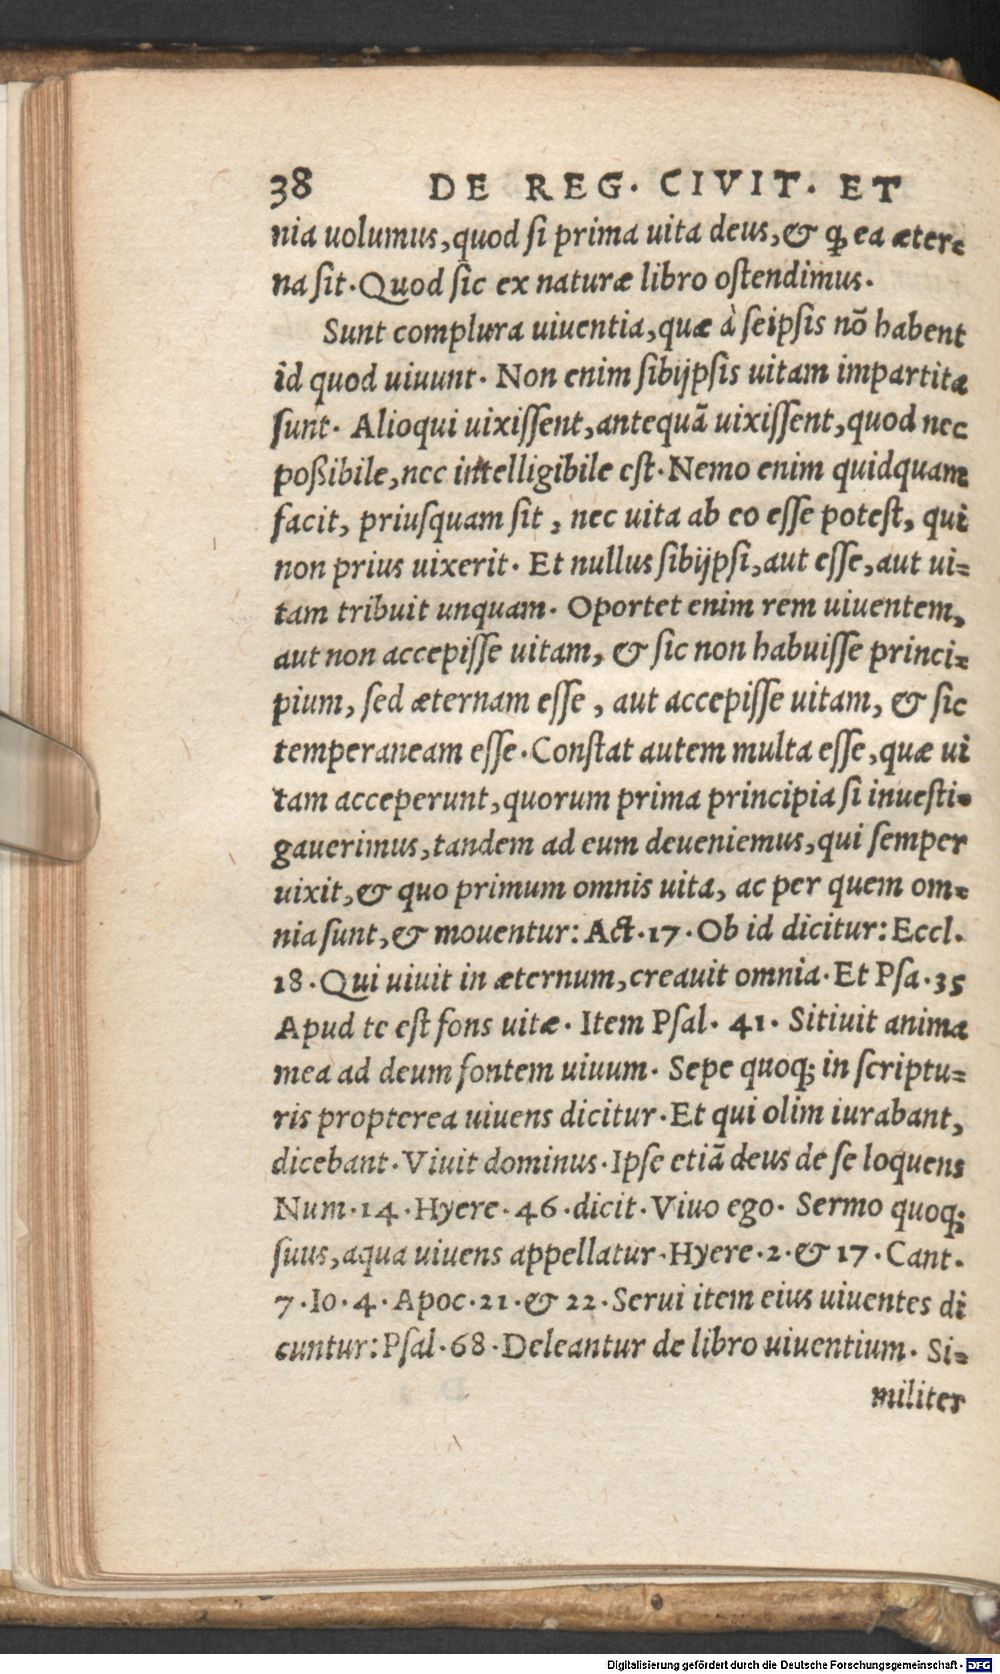 38 DE REG. CIVIT. ET
nia uolumus, quod si prima uita deus, & ꝙ ea æter-
na sit. Quod sic ex naturæ libro ostendimus.
Sunt complura uiuentia, quæ à seipsis nõ habent
id quod uiuunt. Non enim sibijpsis uitam impartita
sunt. Alioqui uixissent, antequã uixissent, quod nec
poßibile, nec intelligibile est. Nemo enim quidquam
facit, priusquam sit, nec uita ab eo esse potest, qui
non prius uixerit. Et nullus sibijpsi, aut esse, aut ui-
tam tribuit unquam. Oportet enim rem uiuentem,
aut non accepisse uitam, & sic non habuisse princi-
pium, sed æternam esse, aut accepisse uitam, & sic
temperaneam esse. Constat autem multa esse, quæ ui
tam acceperunt, quorum prima principia si inuesti-
gauerimus, tandem ad eum deueniemus, qui semper
uixit, & quo primum omnis uita, ac per quem om-
nia sunt, & mouentur: Act. 17. Ob id dicitur: Eccl.
18. Qui viuit in æternum, creauit omnia. Et Psa. 35
Apud te est fons uitæ. Item Psal. 41. Sitiuit anima
mea ad deum fontem uiuum. Sepe quoq; in scriptu-
ris propterea uiuens dicitur. Et qui olim iurabant,
dicebant. Viuit dominus. Ipse etiã deus de se loquens
Num. 14. Hyere. 46. dicit. Viuo ego. Sermo quoq;
suus, aqua uiuens appellatur. Hyere. 2. & 17. Cant.
7. Io. 4. Apoc. 21. & 22. Serui item eius uiuentes di
cuntur: Psal. 68. Deleantur de libro uiuentium. Si-
militer
Digitalisierung gefördert durch die Deutsche Forschungsgemeinschaft - DFG